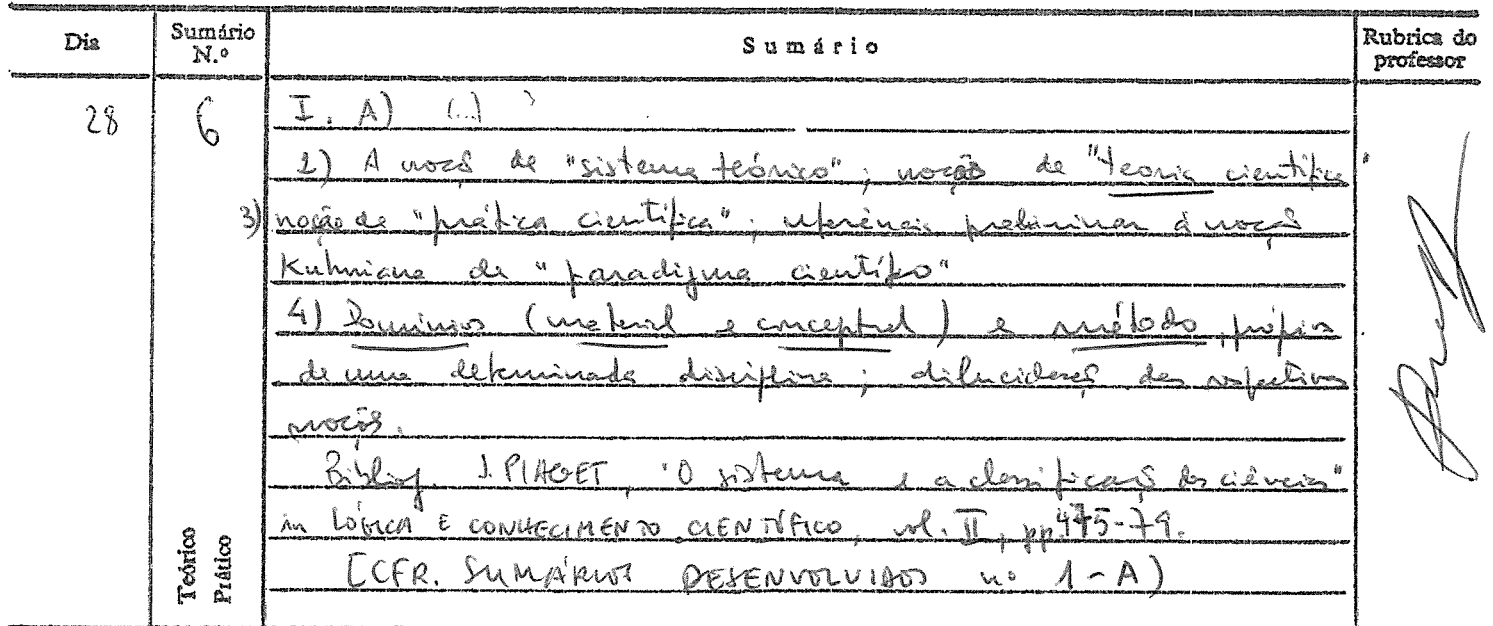 Dia
Sumário N.º
Sumário
Rubrica do professor
28
6
I. A) (...)
2) A noção de "sistema teórico"; noção de "teoria científica"
3) noção de "prática científica"; referências preliminares à noção
Kuhniana de "paradigma científico"
4) Domínios (material e conceptual) e método próprios
de uma determinada disciplina; dilucidação das respectivas
noções.
Bibliog. J. PIAGET, "O sistema e a classificação das ciências"
in LÓGICA E CONHECIMENTO CIENTÍFICO, vol. II, pp 475-79.
[CFR. SUMÁRIOS DESENVOLVIDOS nº 1-A)
Teórico
Prático